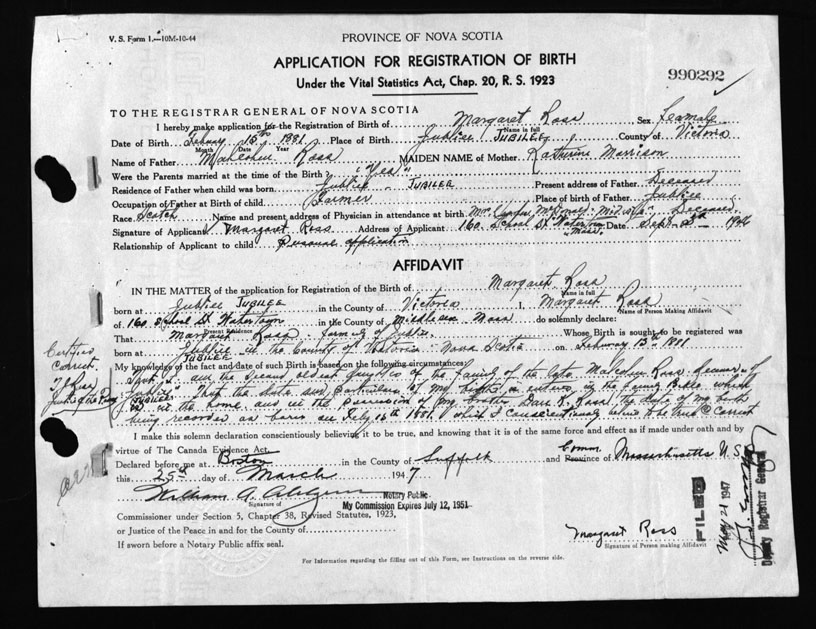 V. S. Form 1.—10M-10-44
PROVINCE OF NOVA SCOTIA
APPLICATION FOR REGISTRATION OF BIRTH
Under the Vital Statistics Act, Chap. 20, R. S. 1923
990292
TO THE REGISTRAR GENERAL OF NOVA SCOTIA
I hereby make application for the Registration of Birth of Margaret Ross Sex
Name in full
Date of Birth 15th 1881 Place of Birth Jubilee JUBILEE County of Victoria
Month Date Year
Name of Father Ross MAIDEN NAME of Mother Morrison
Were the Parents married at the time of Birth? "Yes"
Residence of Father when child was born JUBILEE Present address of Father Deceased
Occupation of Father at Birth of child Farmer Place of birth of Father
Race Scotch Name and present address of Physician in attendance at birth Mrs. Deceased
Signature of Applicant Margaret Ross Address of Applicant 160 School St Watertown Mass. Date Sept.
Relationship of Applicant to child Personal application
AFFIDAVIT
IN THE MATTER of the application for Registration of the Birth of Margaret Ross
Name in full
born at JUBILEE in the County of Victoria I, Margaret Ross
Name of Person Making Affidavit
of 160 School St Watertown in the County of Middlesex Mass do solemnly declare:
Present Residence
That Margaret Ross formerly of Whose Birth is sought to be registered was
born at JUBILEE in the County of Victoria Nova Scotia on 15th 1881
My knowledge of the fact and date of Birth is based on the following circumstances:
Certified Correct
That I am the second oldest daughter of the family of the late Ross
in the home and in the possession of my brother Dan K. Ross, the date of my birth
being recorded as born on 1881, which I conscientiously believe to be true & correct
I make this solemn declaration conscientiously believing it to be true, and knowing that it is of the same force and effect as if made under oath and by
virtue of The Canada Evidence Act.
Declared before me at Boston in the County of Suffolk and Comm. Province of Massachusetts U.S.
this 25th day of March 1947
William A. Notary Public
Signature of
My Commission Expires July 12, 1951
Commissioner under Section 5, Chapter 38, Revised Statutes, 1923,
or Justice of the Peace in and for the County of
If sworn before a Notary Public affix seal.
Margaret Ross
Signature of Person making Affidavit
FILED
May 21 1947
Deputy Registrar General
For Information regarding the filling out of this Form, see Instructions on the reverse side.